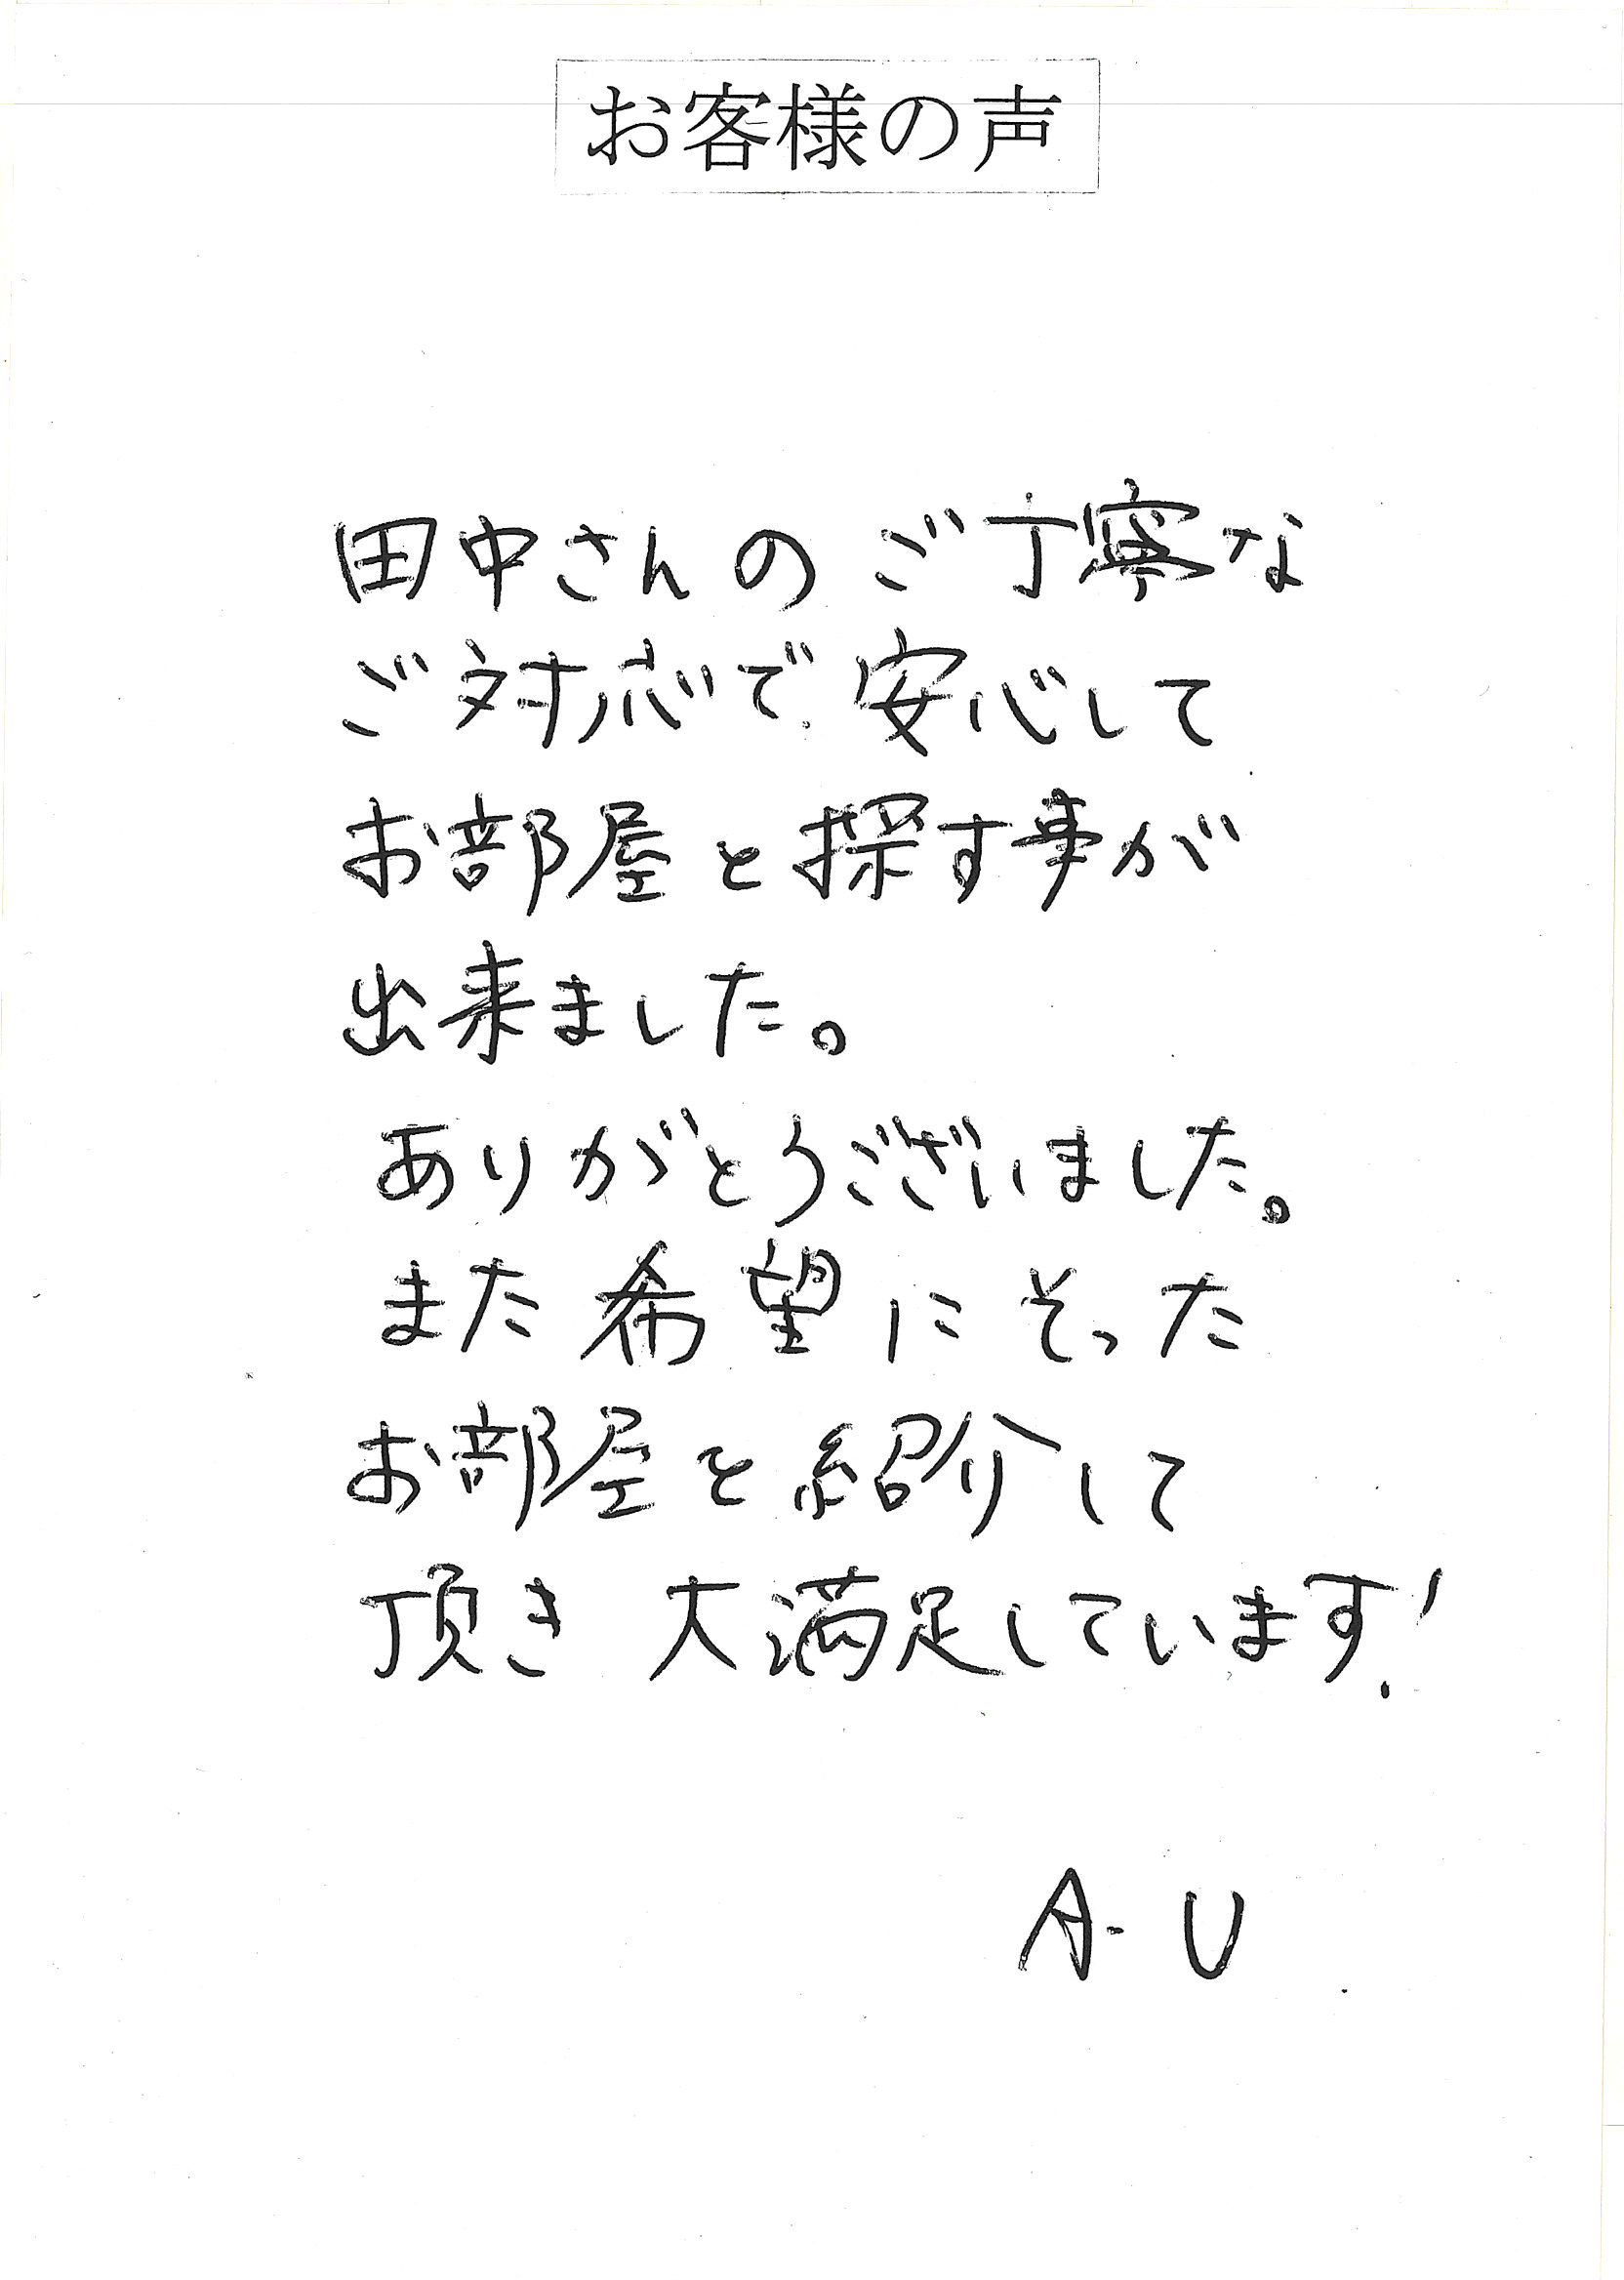 お客様の声
田中さんの ご丁寧な
ご対応で 安心して
お部屋を探す事が
出来ました。
ありがとうございました。
また希望にそった
お部屋を紹介して
頂き 大満足しています!
A. U